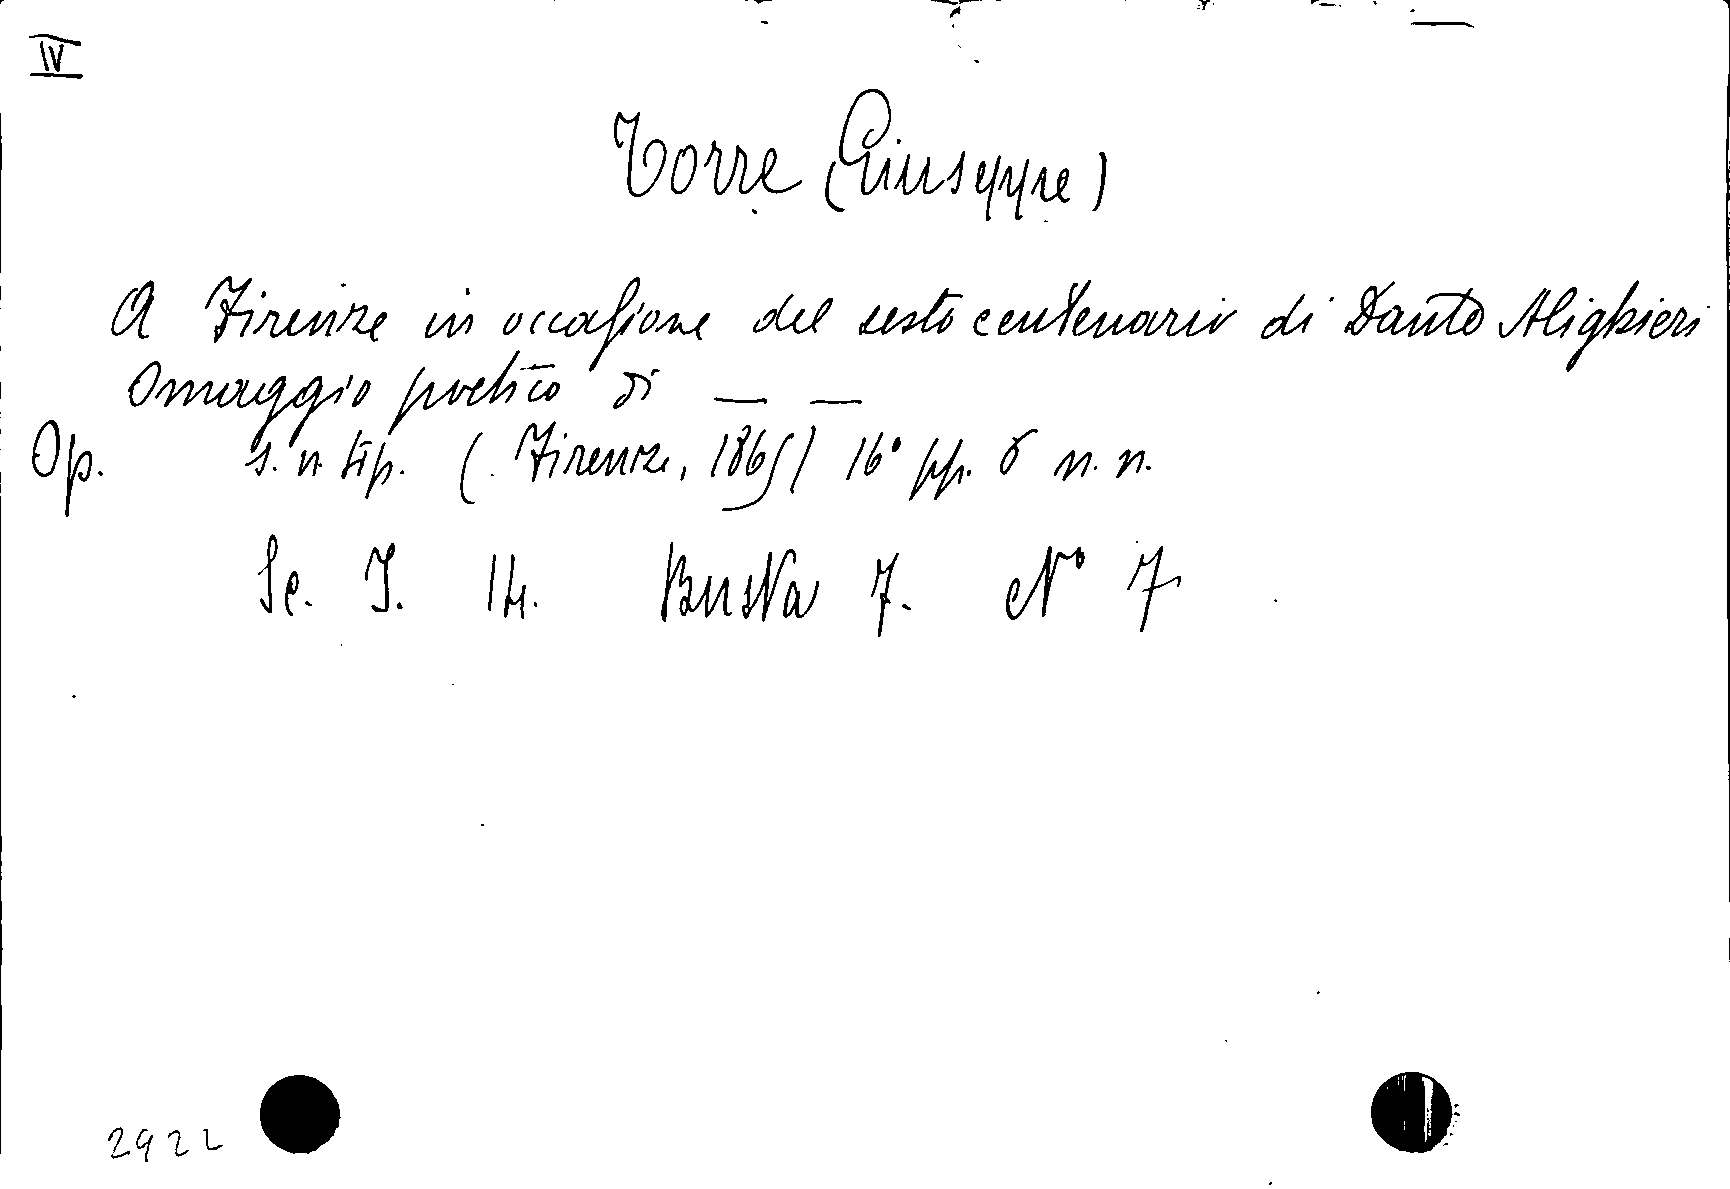 IV
Torre (Giuseppe)
A Firenze in occasione del sesto centenario di Dante Alighieri
Omaggio poetico di — —
Op. s. n. tip. (Firenze, 1865) 16° pp. 6 n. n.
Sc. I. 14. Busta 7. N° 7
2922